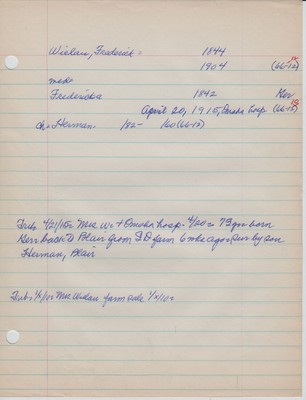 Wielan, Frederick = 1844
1904 (66-12)
md=
Fredericka 1842 Ger
April 20, 1915, Omaha hosp (66-12)
ch: Herman. 182- 160 (66-12)
Trib: 4/21/15: Mrs W: + Omaha hosp. 4/20 = 73 yrs born
Ger: back to Blair from S.D farm 6 wks ago: sur by son
Herman, Blair
Trib: 1/ /10: Mrs Wielan farm sale 1/ /10: